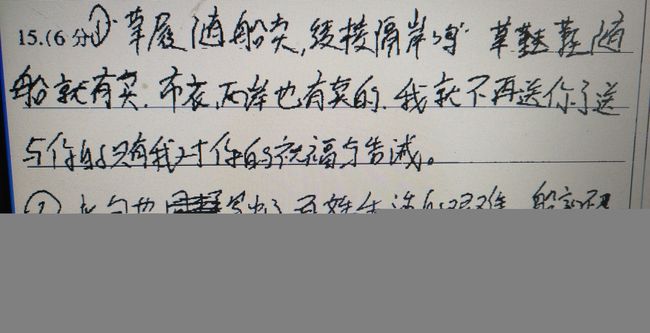 15.(6分)①草屦随船卖,绫梭隔岸鸣 草鞋随
船就有卖.布衣,两岸也有卖的.我就不再送你了送
与你的只有我对你的祝福与告诫。
② 也